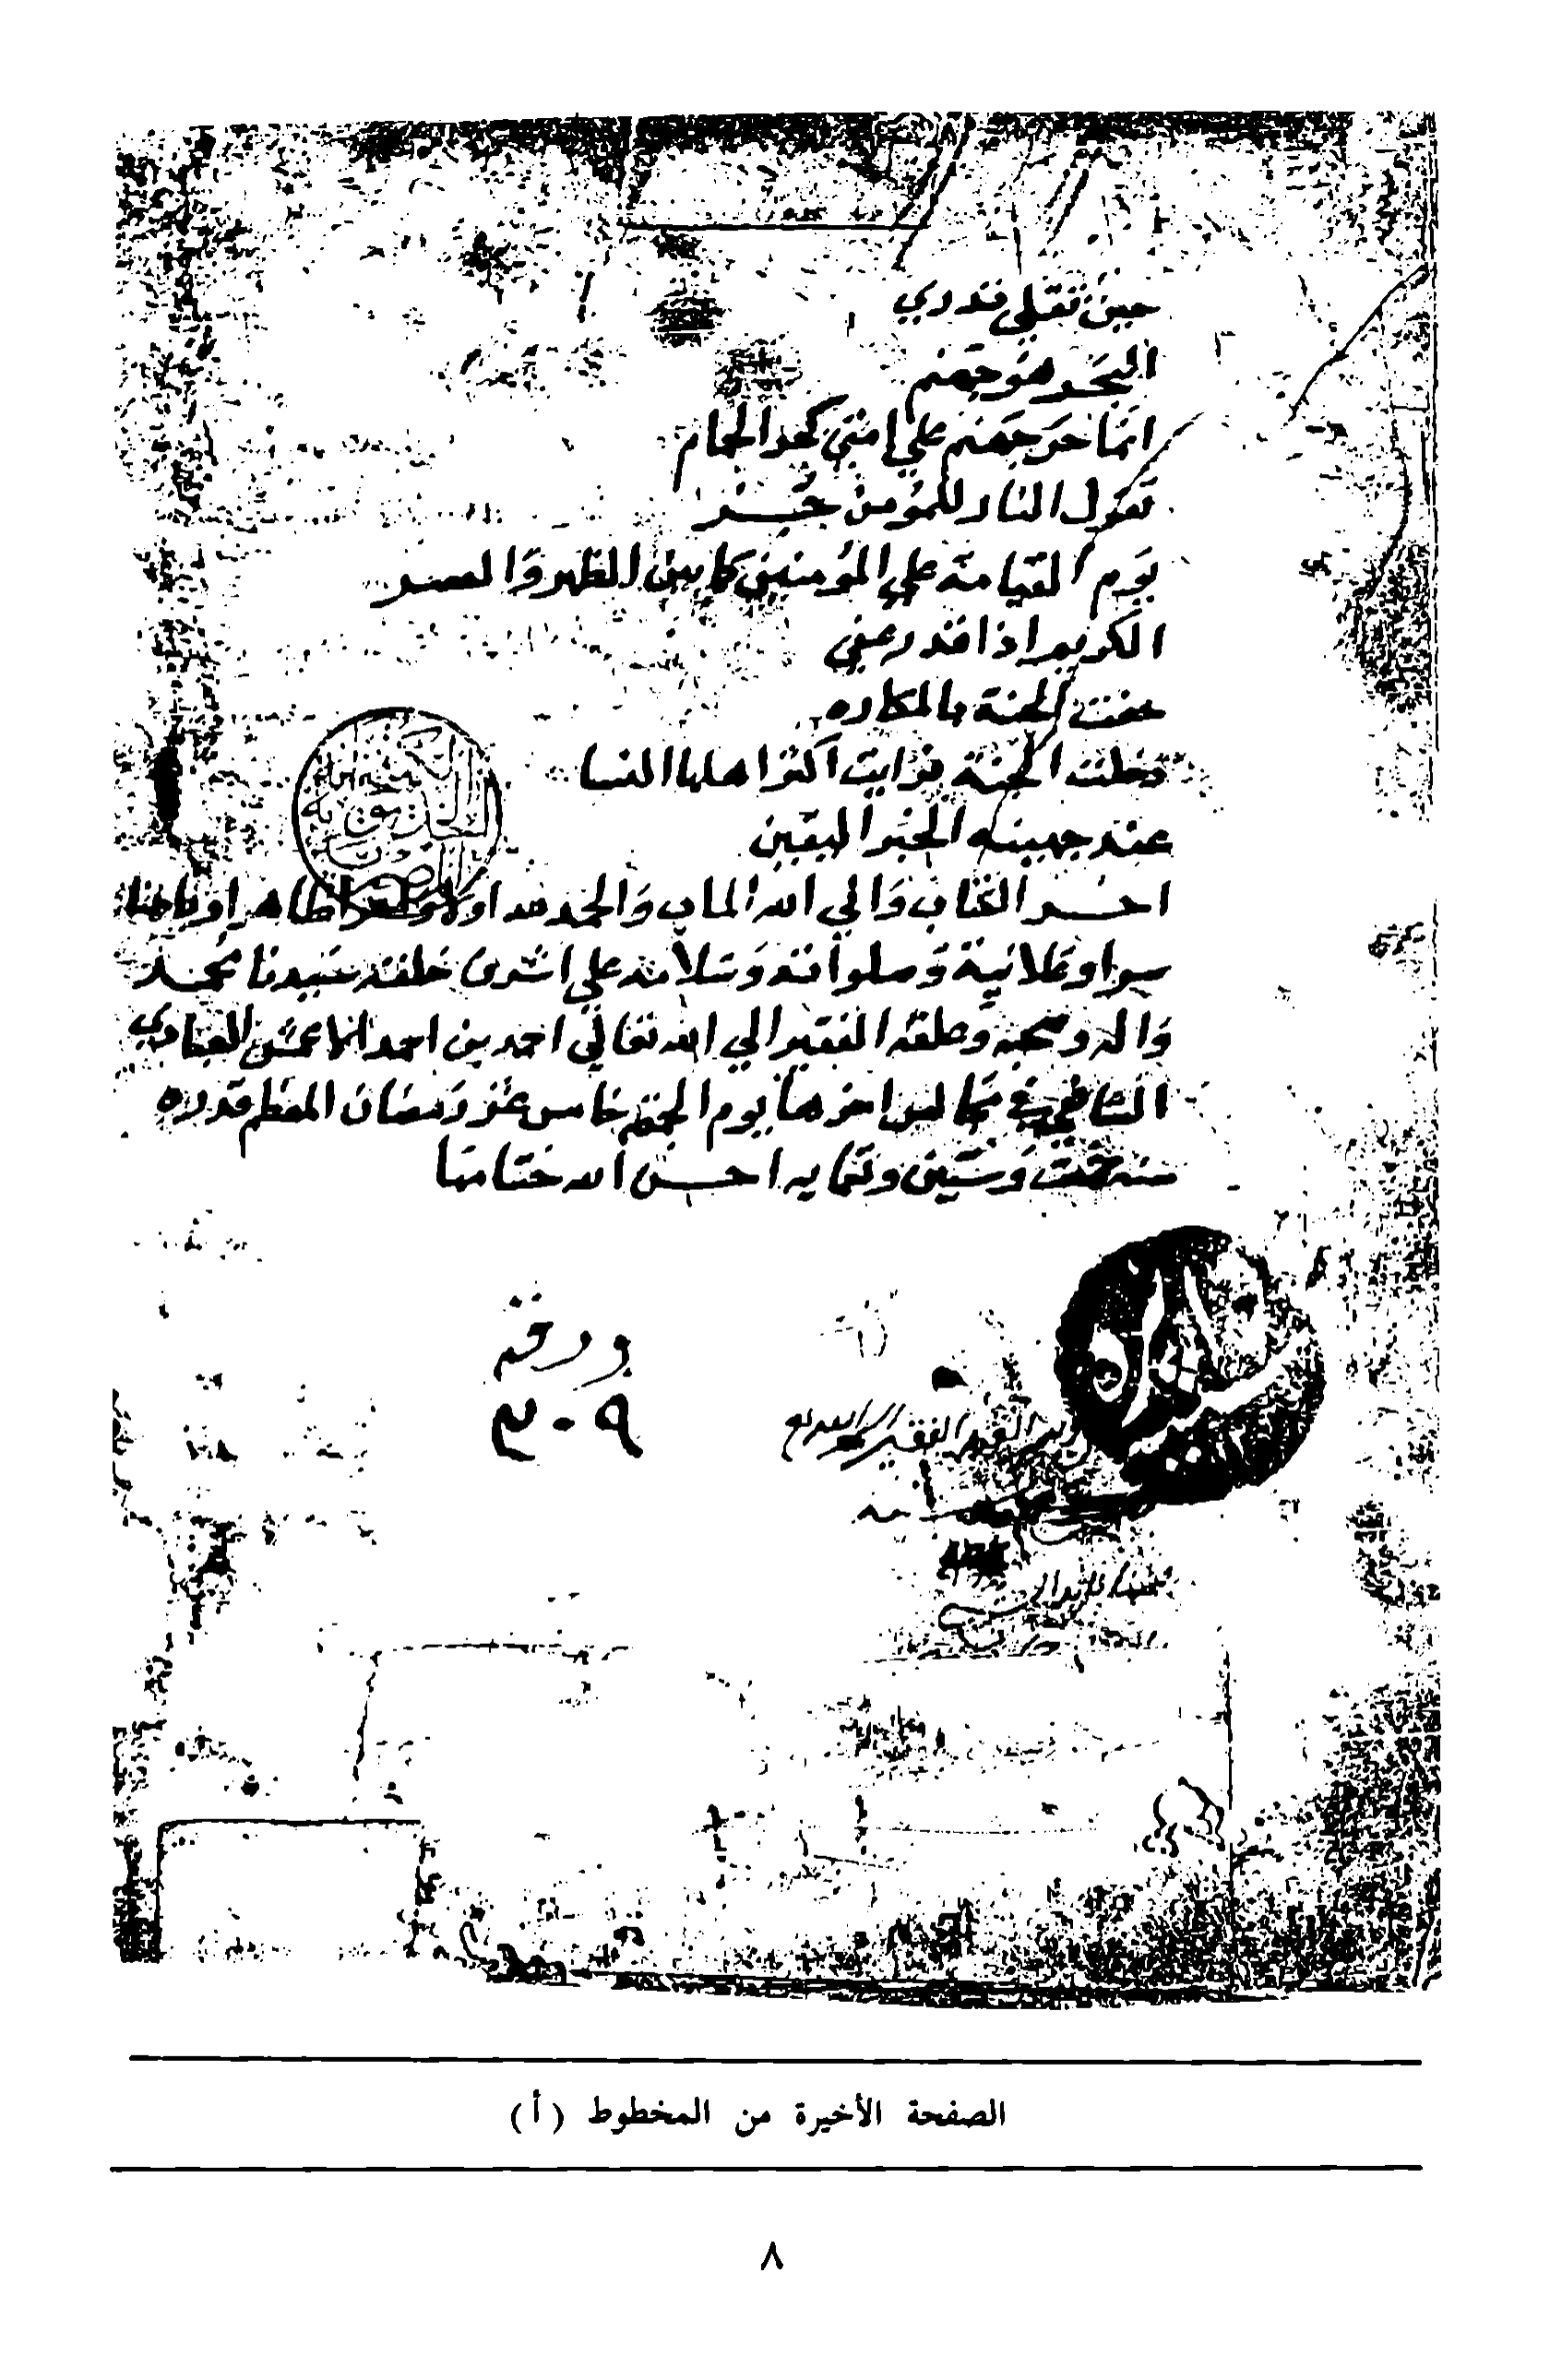 حين تقلي قدري
البحر هو جهنم
انما حر جهنم علي امتي كحر الحمام
تقول النار للمؤمن جز
يوم القيامة علي المؤمنين كما بين الظهر والعصر
الكريم اذا قدر عفي
حفت الجنة بالمكاره
دخلت الجنة فرايت اكثر اهلها النسا
عند جهينه الخبر اليقين
اخر الكتاب والي الله الماب والحمد لله اولا واخرا ظاهرا وباطنا
سرا وعلانية وصلواته وسلامه علي اشرف خلقه سيدنا محمد
واله وصحبه وعلقه الفقير الي الله تعالي احمد بن احمد الاعمش العبادي
الشافعي في مجالس اخرها يوم الجمعة خامس عشر رمضان المعظم قدره
سنة وستين وثمانمايه احسن الله ختامها
ورقة
٣٠٩
الفقير
الصفحة الأخيرة من المخطوط (أ)
٨